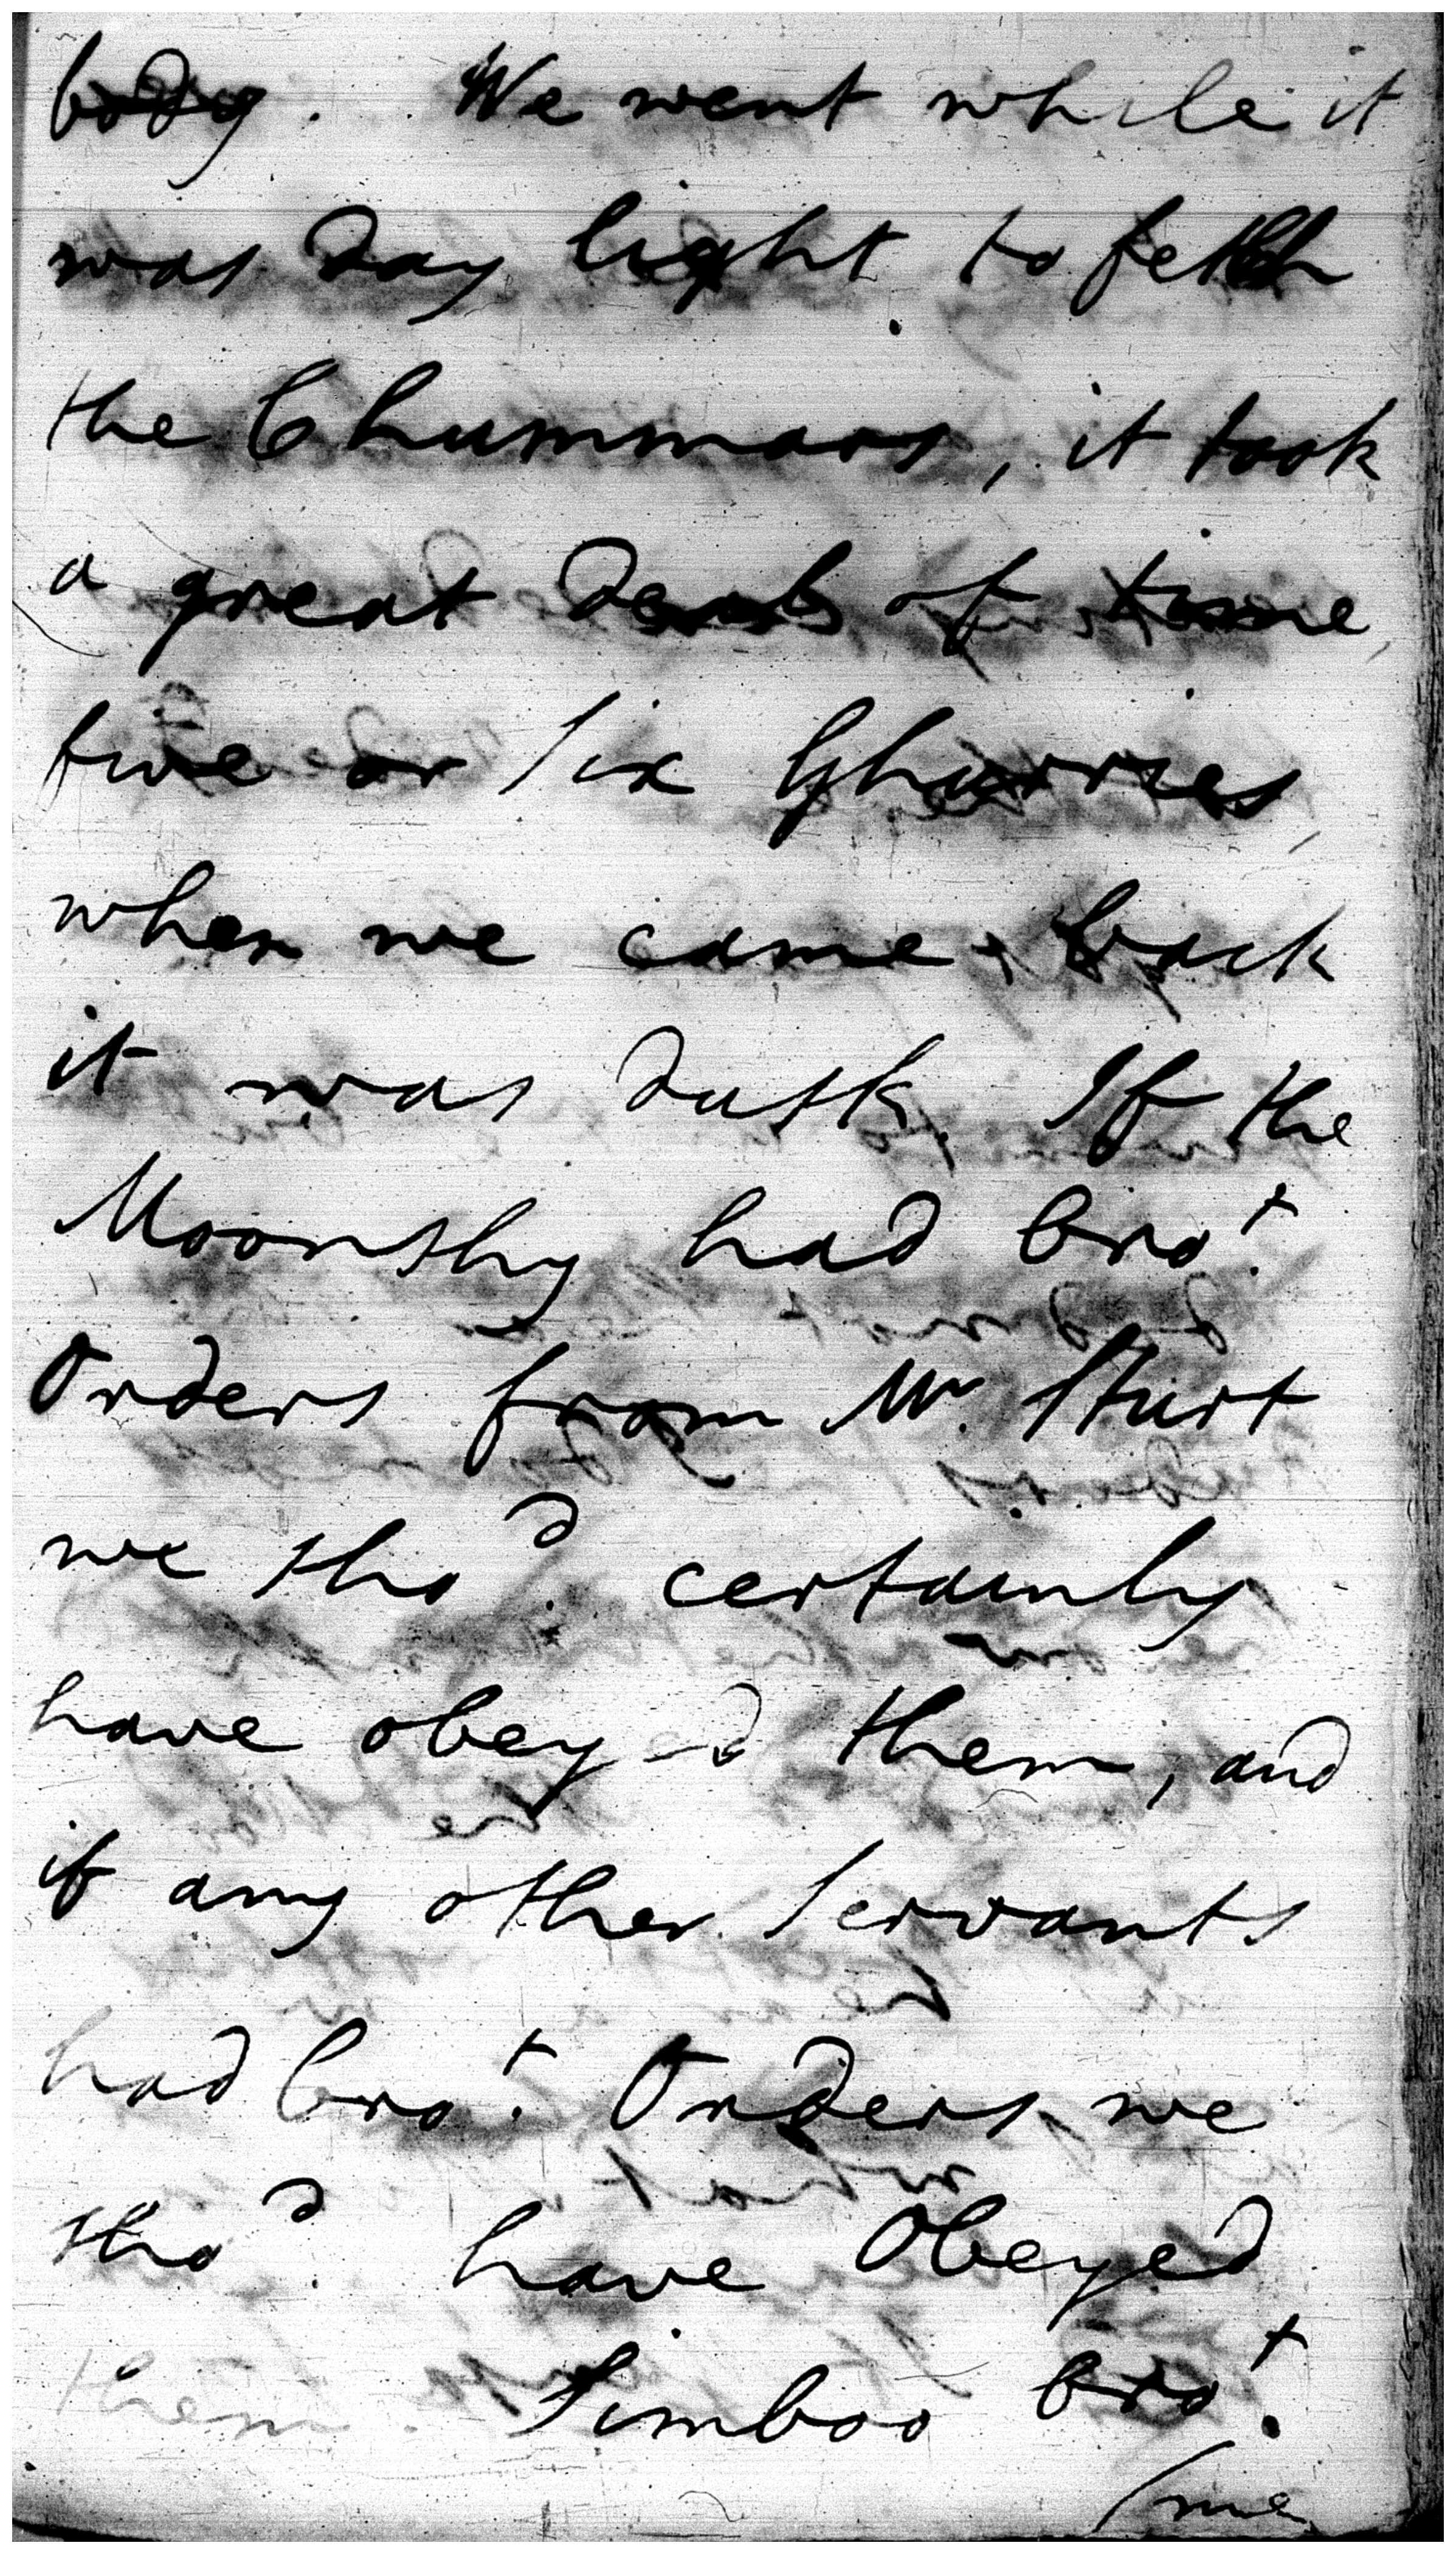 body. We went while it
was day light to fetch
the Chummars, it took
a great deal of time,
five or six Ghurries,
when we came back
it was dusk. If the
Moonshy had bro.t
Orders from Mr. Sturt
we sho.d certainly
have obeyed them, and
if any other Servants
had bro.t Orders we
sho.d have Obeyed
them. Simboo bro.t
(me